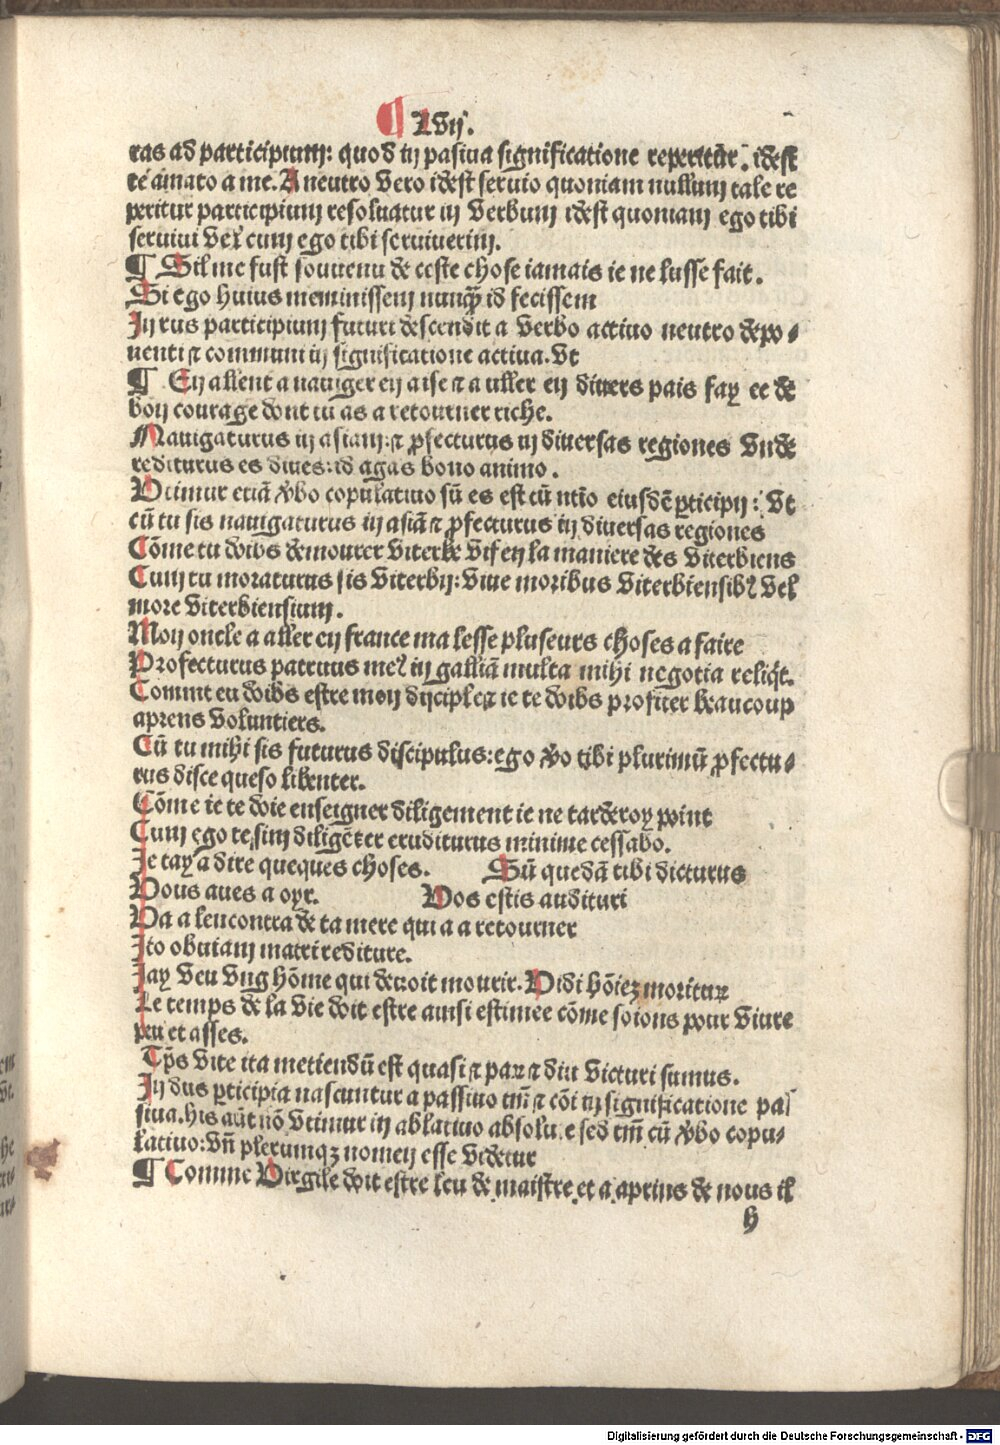 ¶ LVij.
ras ad participium: quod in pasiua significatione reperitur. idest
te amato a me. A neutro vero idest seruio quoniam nullum tale re
peritur participium resoluatur in verbum idest quoniam ego tibi
seruiui vel cum ego tibi seruiuerim.
¶ Sil me fust souuenu de ceste chose iamais ie ne lusse fait.
Si ego huius meminissem nunq̄ id fecissem
In rus participium futuri descendit a verbo actiuo neutro depo-
nenti ⁊ communi in significatione actiua. vt
¶ En allent a nauiger en aise ⁊ a aller en diuers pais fay ce de
bon courage dont tu as a retourner riche.
Nauigaturus in asiam: ⁊ ꝓfecturus in diuersas regiones vnde
rediturus es diues: id agas bono animo.
Vtimur etiā ꝟbo copulatiuo sū es est cū ntīo eiusdē ꝑticipij: vt
cū tu sis nauigaturus in asiā ⁊ ꝓfecturus in diuersas regiones
Cōme tu doibs demourer viterbe vif en la maniere des viterbiens
Cum tu moraturus sis viterbij: viue moribus viterbiensibꝰ vel
more viterbiensium.
Mon oncle a aller en france ma lesse pluseurs choses a faire
Profecturus patruus meꝰ in galliā multa mihi negotia reliq̄t.
Commt eu doibs estre mon disciple ⁊ ie te doibs profiter beaucoup
aprens voluntiers.
Cū tu mihi sis futurus discipulus: ego ꝟo tibi plurimū ꝓfectu-
rus disce queso libenter.
Cōme ie te doie enseigner diligement ie ne tarderoy point
Cum ego te sim diligēter eruditurus minime cessabo.
Je tay a dire queques choses. Sū quedā tibi dicturus
Vous aues a oyr. Vos estis audituri
Va a leucontra de ta mere qui a a retourner
Ito obuiam matri rediture.
Jay veu vng hōme qui deuoit mourir. Vidi hōiez moriturꝝ
Le temps de la vie doit estre ainsi estimee cōme soions pour viure
peu et asses.
Tp̄s vite ita metiendū est quasi ⁊ parꝝ ⁊ diu victuri sumus.
In dus ꝑticipia nascuntur a passiuo tm̄ ⁊ cōi in significatione pas
siua. his aūt nō vtimur in ablatiuo absoluto sed tm̄ cū ꝟbo copu-
latiuo: vn̄ plerumqꝫ nomen esse videtur
¶ Comme Virgile doit estre leu de maistre et a aprins de nous il
h
Digitalisierung gefördert durch die Deutsche Forschungsgemeinschaft - DFG